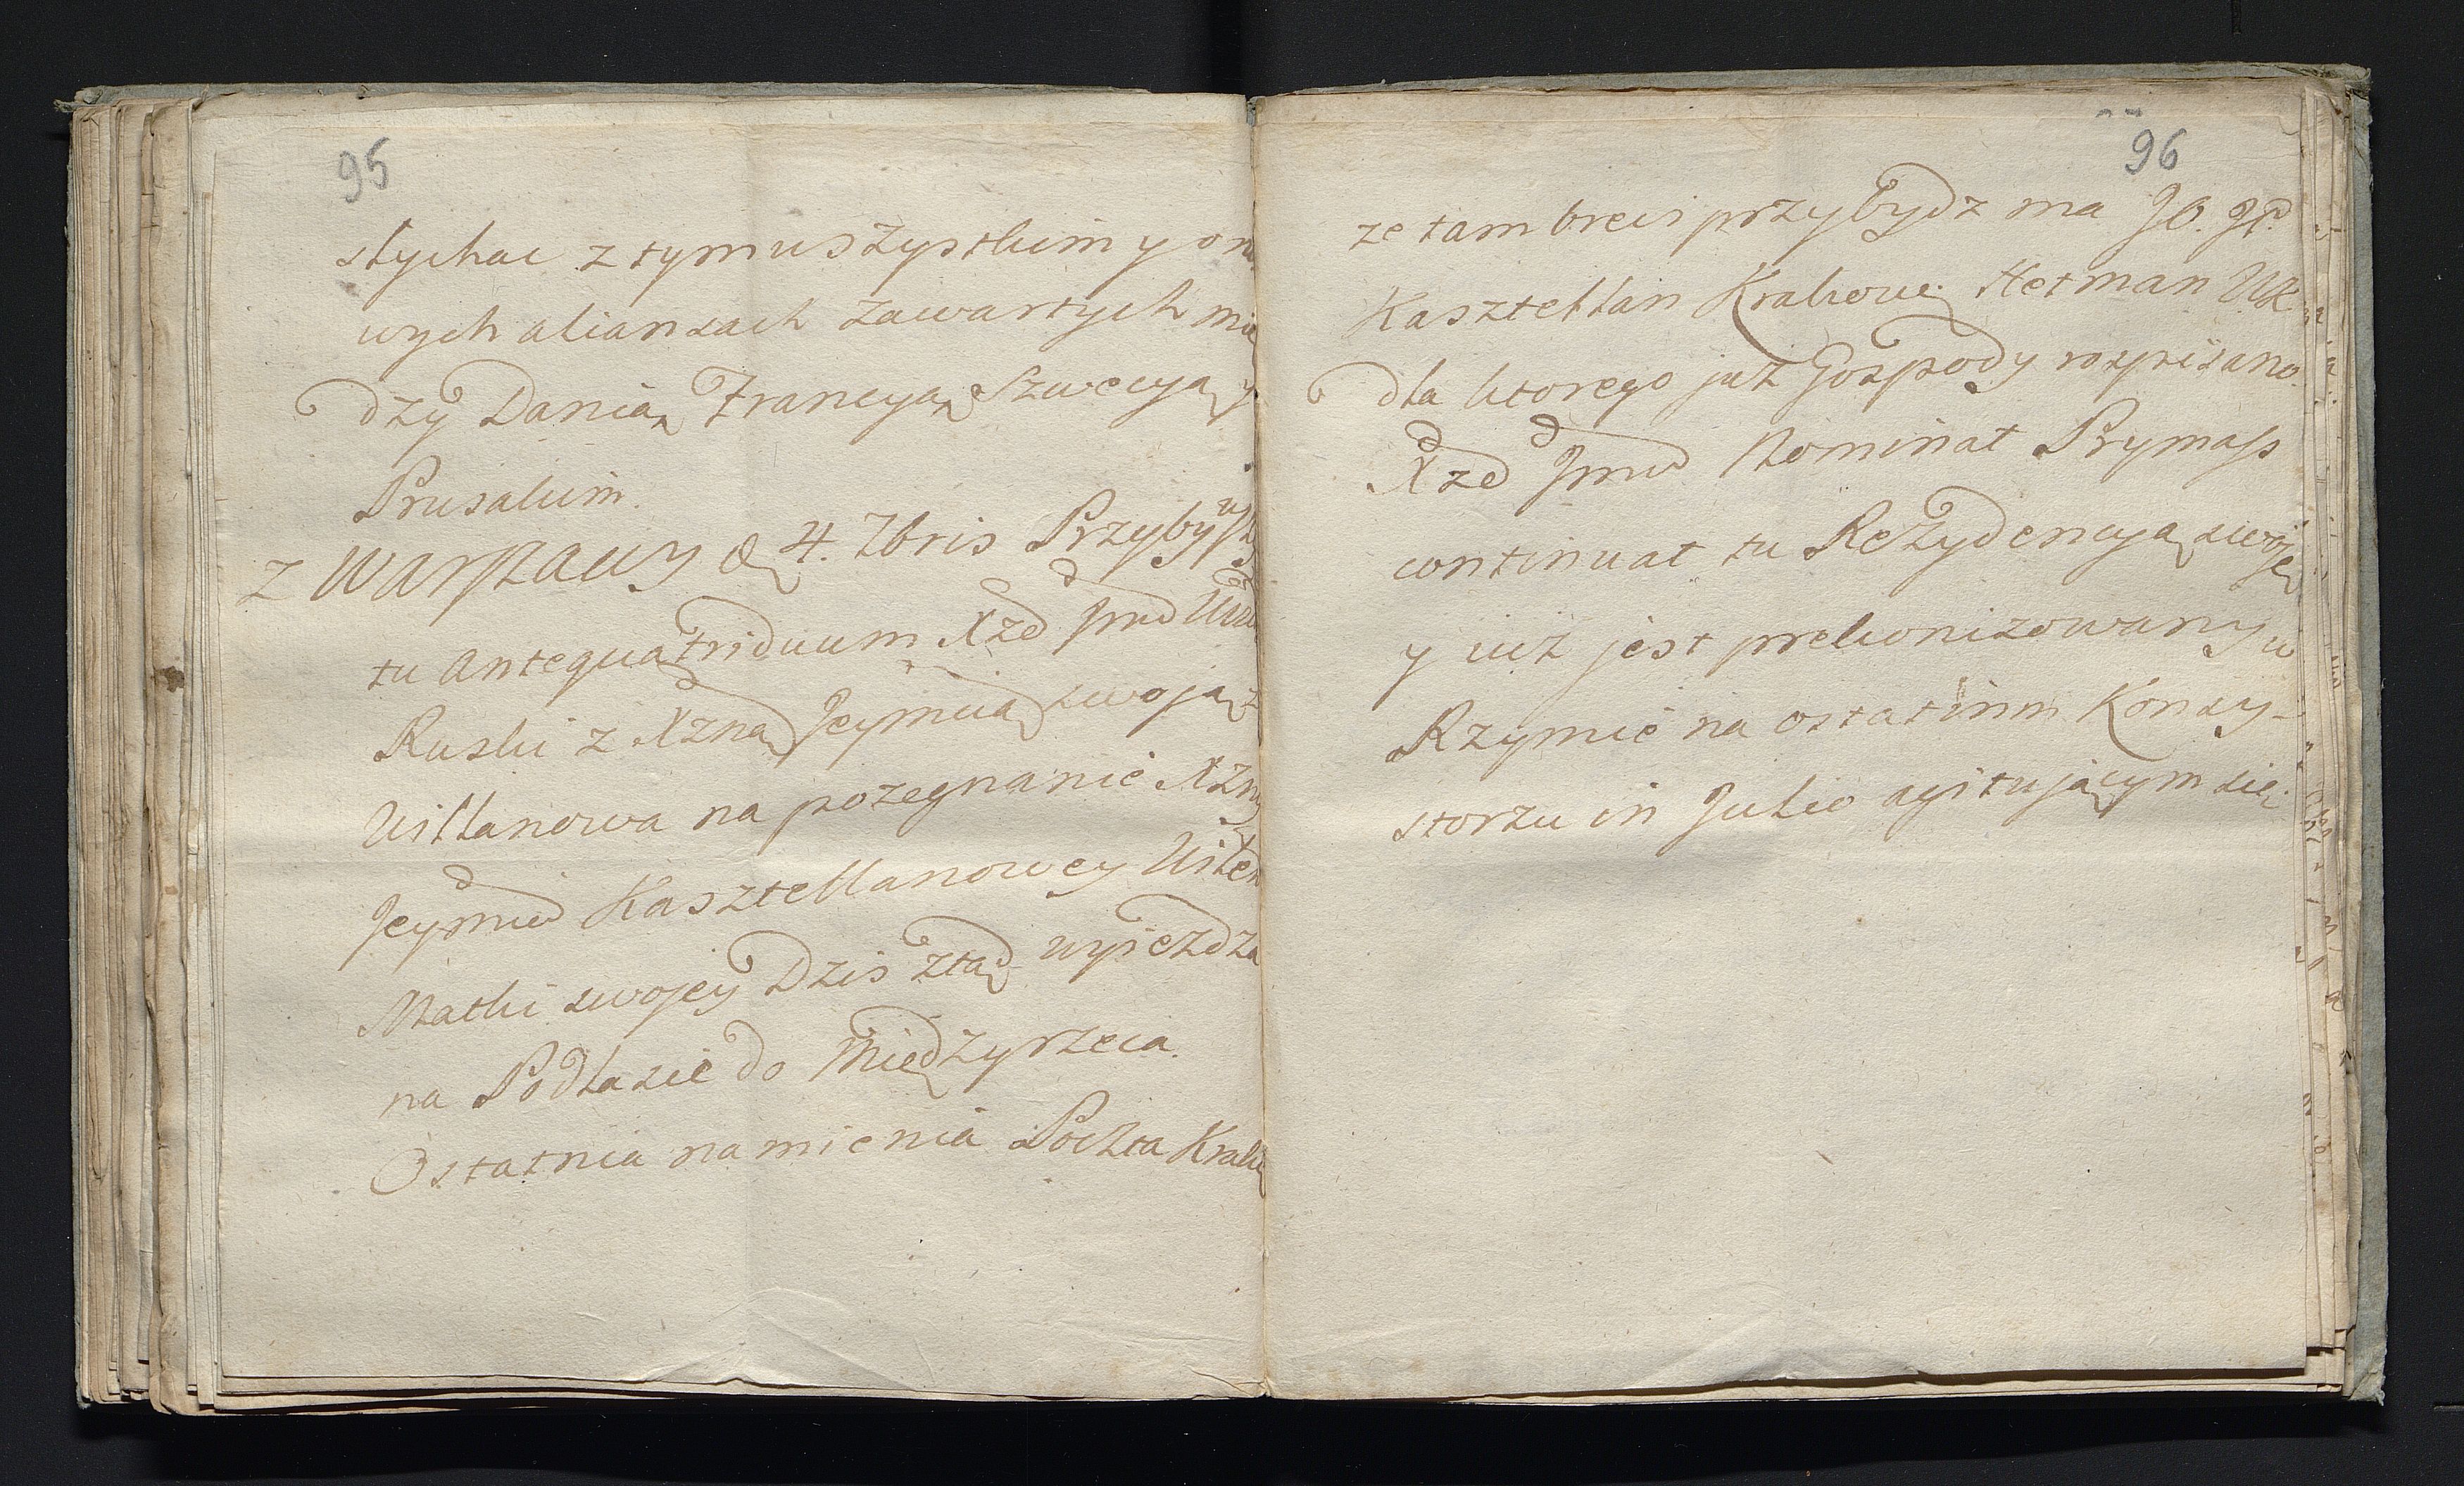 95
słychac z tym wszystkim y o no
wych aliansach zawartych mię
dzy Danią, Francyą, Szwecyą y
Prusakiem.
Z Warszawy d. 4. 7bris Przybył
tu antequa triduum Xże Jmć
Ruski z Xżną Jeymcią swoją z
Willanowa na pozegnanie Xżny
Jeymć Kasztellanowey Wilen
Matki swojey Dzis ztąd wyiezdza
na Podlasie do Międzyrzecia.
Ostatnia namienia Poczta Krak
96
ze tam brevi przybydz ma JO. JP.
Kasztellan Krakows. Hetman WK.
dla ktorego już Gospody rozpisano.
Xże Jmć Nominat Prymass
continuat tu Rezydencyą swoję
y iuż jest prekonizowany w
Rzymie na ostatnim Konsy-
storzu in Julio agitującym się.